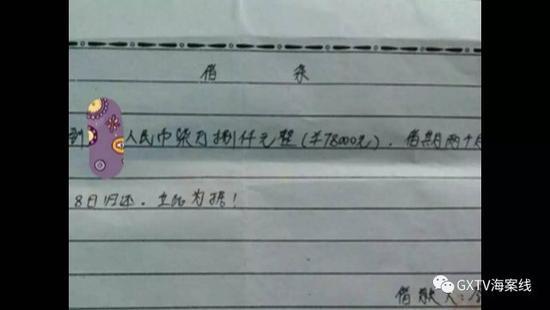 借 条
到 人民币柒万捌仟元整(￥78000元)。借期两个月
8日归还。立此为据！
借款人：
GXTV海案线